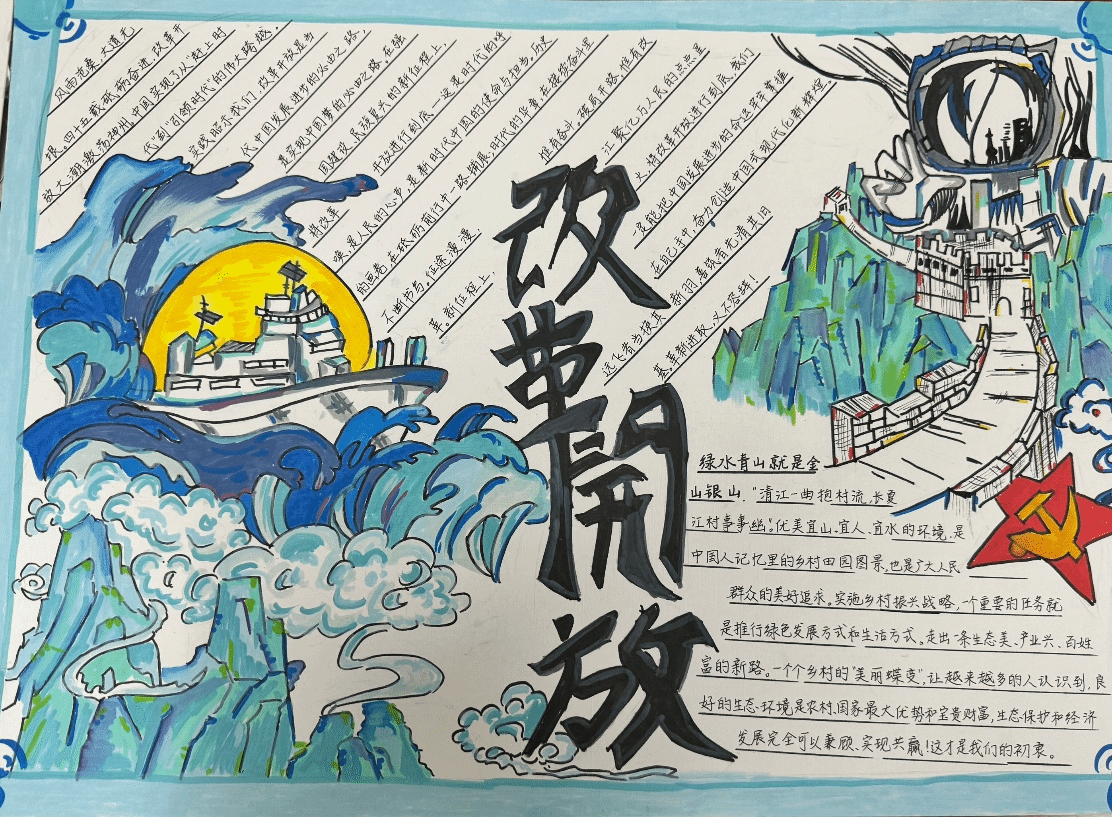 风雨沧桑,大道无
垠。四十五载砥砺奋进,改革开
放大潮激荡神州,中国实现了从“赶上时
代”到“引领时代”的伟大跨越。
实践昭示我们,改革开放是当
代中国发展进步的必由之路,
是实现中国梦的必由之路。在强
国建设、民族复兴的新征程上,
将改革
开放进行到底——这是时代的呼
唤,是人民的心声,是新时代中国的使命与担当。历史
的画卷,在砥砺前行中一路铺展;时代的华章,在接续奋斗里
不断书写。征途漫漫,
惟有奋斗。接易开路,惟有改
革。新征程上,
江聚亿万人民的点点星
火,将改革开放进行到底,我们
定能把中国发展进步的命运牢牢掌握
在自己手中,奋力创造中国式现代化新辉煌。
远飞者当换其新羽,善筑者先清其旧
基。革新进取,义不容辞!
改革開放
绿水青山就是金
山银山,“清江一曲抱村流,长夏
江村事事幽。”优美宜山、宜人、宜水的环境,是
中国人记忆里的乡村田园图景,也是广大人民
群众的美好追求。实施乡村振兴战略,一个重要的任务就
是推行绿色发展方式和生活方式。走出一条生态美、产业兴、百姓
富的新路。一个个乡村的“美丽蝶变”,让越来越多的人认识到,良
好的生态环境是农村、国家最大优势和宝贵财富,生态保护和经济
发展完全可以兼顾、实现共赢!这才是我们的初衷。